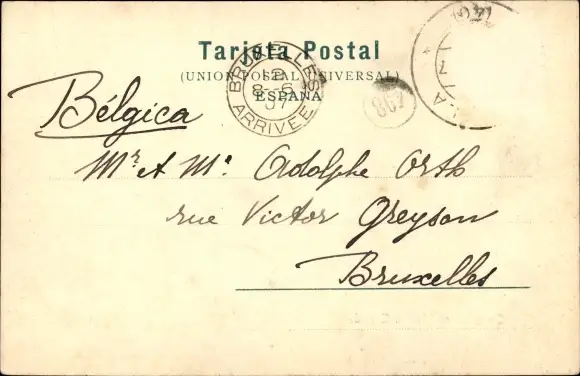 Tarjeta Postal
(UNION POSTAL UNIVERSAL)
ESPAÑA
BRUXELLES
12
8-6
07
ARRIVEE
Bélgica
Mr. et Me. Adolphe Orth
rue Victor Greyson
Bruxelles